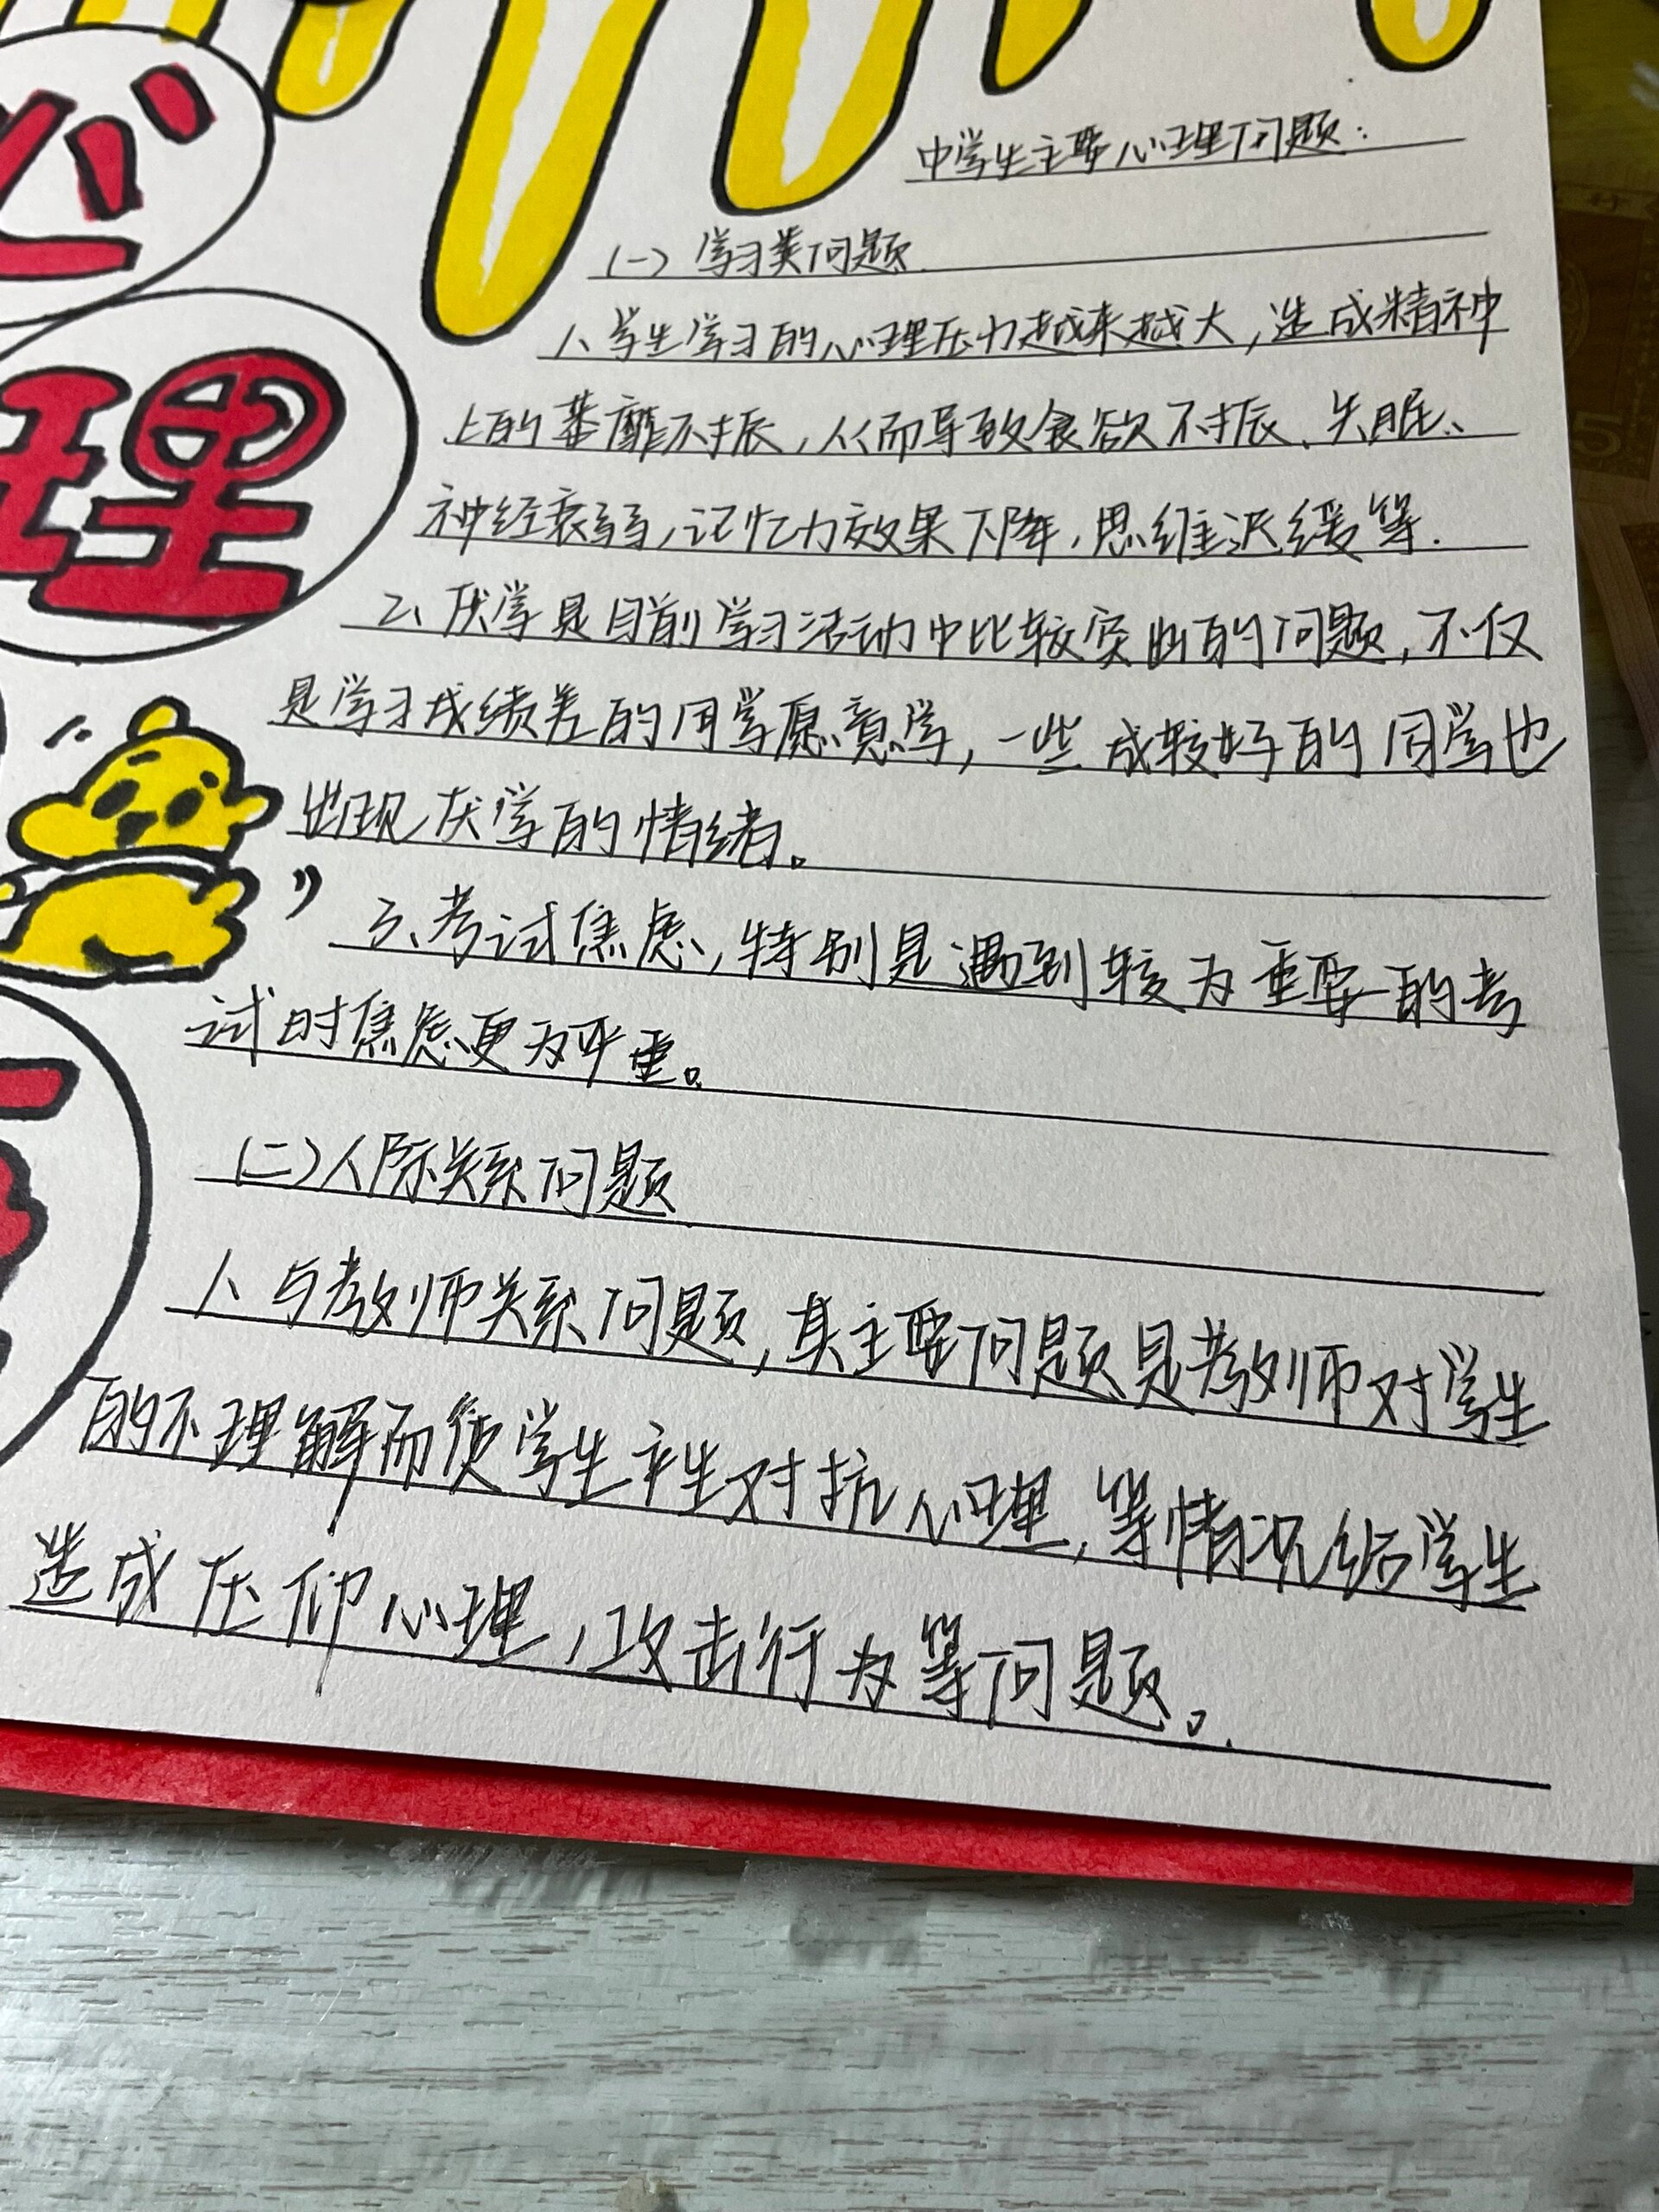 心
理
中学生主要心理问题:
(一) 学习类问题
1、学生学习的心理压力越来越大,造成精神
上的萎靡不振,从而导致食欲不振、失眠、
神经衰弱,记忆力效果下降,思维迟缓等.
2、厌学是目前学习活动中比较突出的问题,不仅
是学习成绩差的同学愿意学,一些成较好的同学也
出现厌学的情绪。
3、考试焦虑,特别是遇到较为重要的考
试时焦虑更为严重。
(二)人际关系问题
1、与教师关系问题,其主要问题是教师对学生
的不理解而使学生产生对抗心理,等情况给学生
造成压仰心理,攻击行为等问题。